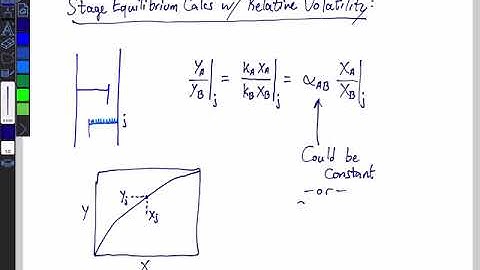 Stage Equilibrium Calcs w/ Relative Volatility:
Y_A/Y_B|_j = k_A X_A/k_B X_B|_j = α_AB X_A/X_B|_j
j
Could be
Constant
-or-
Y_j
X_j
Y
X